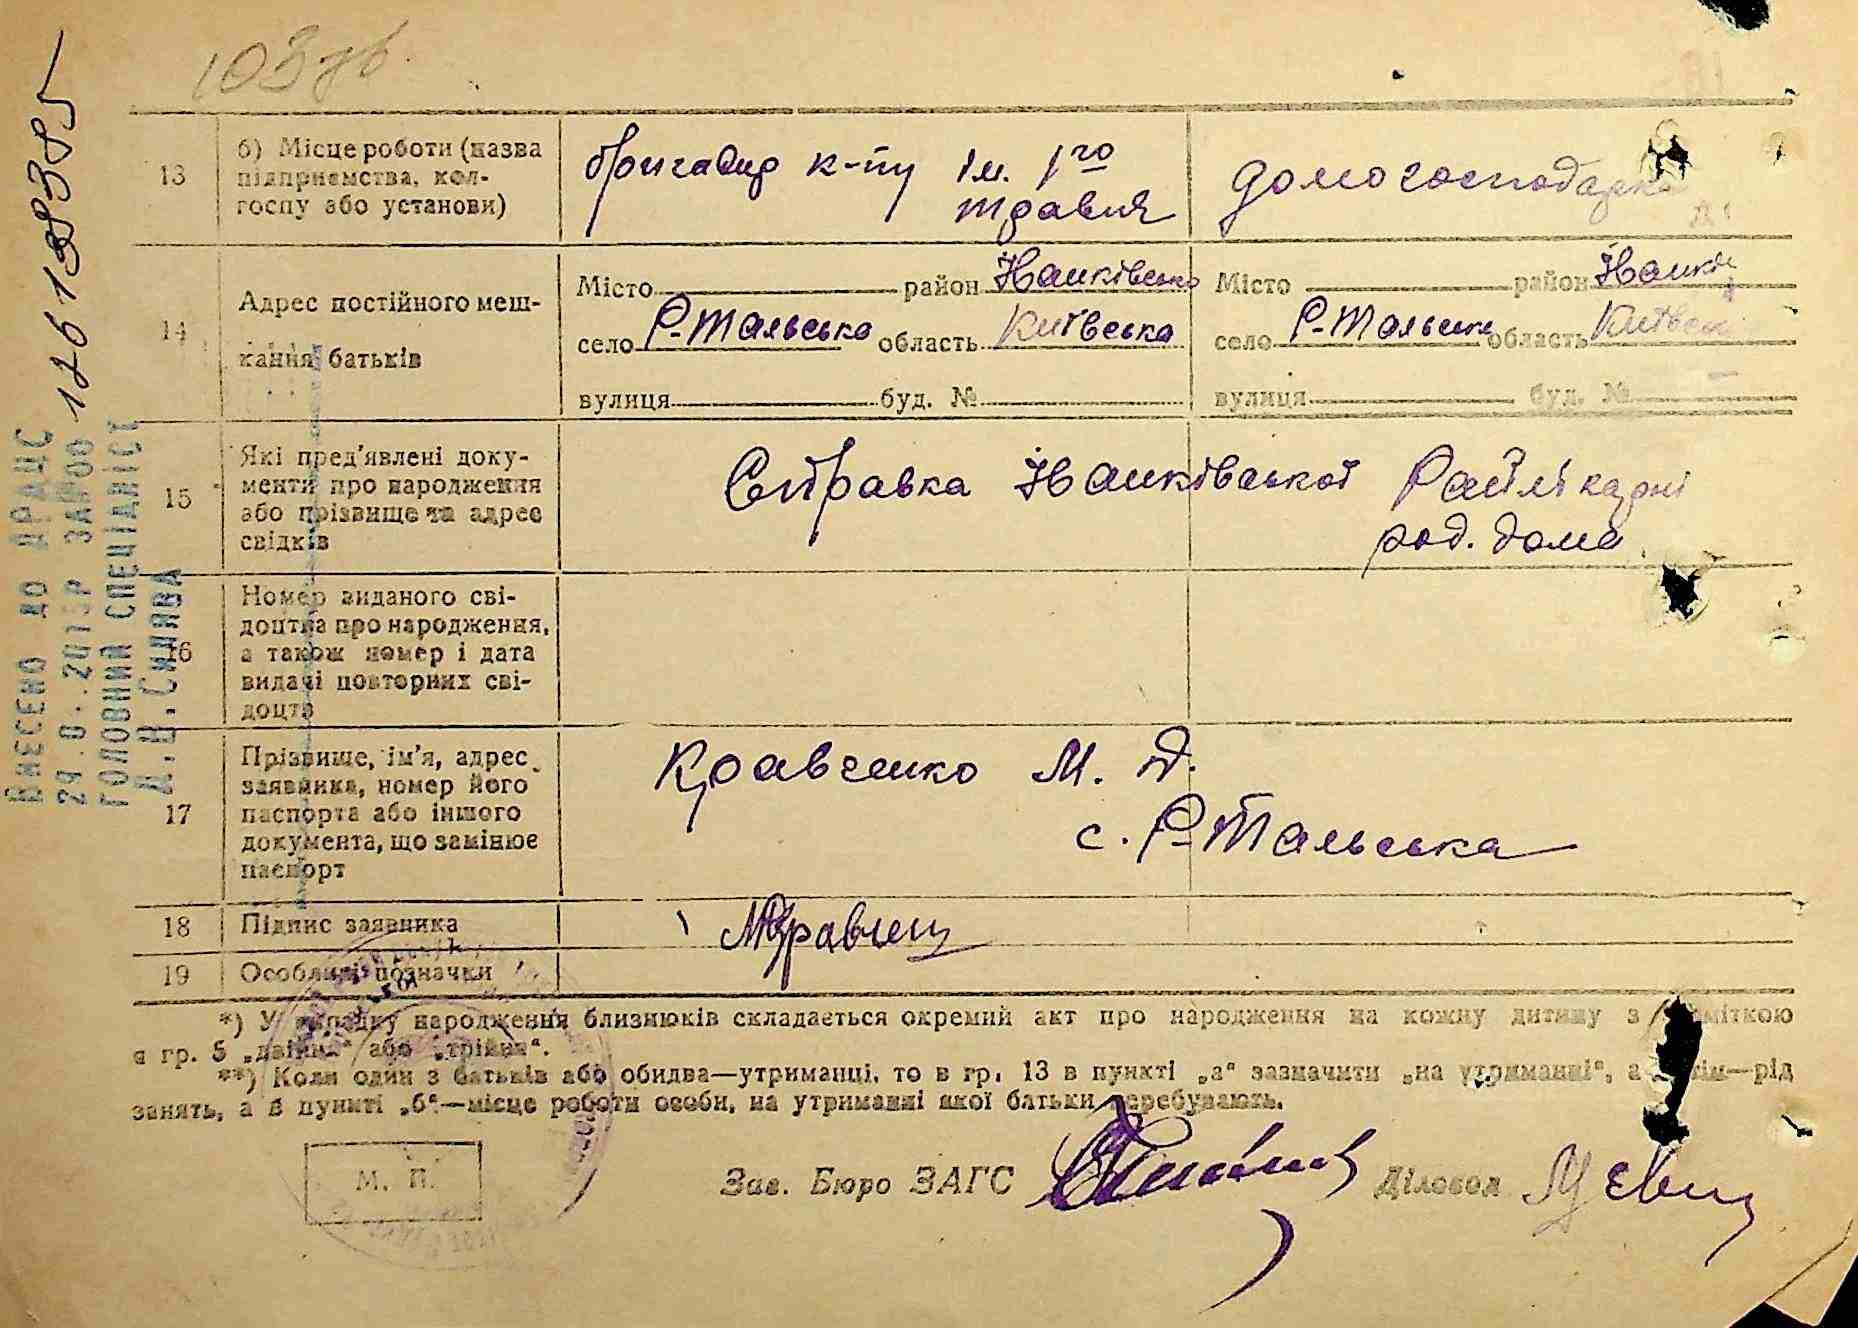 103 зв.
126138385
13
б) Місце роботи (назва
підприємства, кол-
госпу або установи)
бригадир к-пу ім. 1го
травня
домогосподарка
14
Адрес постійного меш-
кання батьків
Місто район Іванківсько
село Р-Тальська область Київська
вулиця буд. №
Місто район Іванків
село Р-Тальська область Київськ
вулиця буд. №
15
Які пред'явлені доку-
менти про народження
або прізвище та адрес
свідків
Справка Іванківської Райлікарні
род. дома
16
Номер виданого сві-
доцтва про народження,
а також номер і дата
видачі повторних сві-
доцтв
17
Прізвище, ім'я, адрес
заявника, номер його
паспорта або іншого
документа, що замінює
паспорт
Кравченко М. Д.
с. Р-Тальська
18
Підпис заявника
19
Особливі позначки
*) У випадку народження близнюків складається окремий акт про народження на кожну дитину з помiткою
в гр. 5 „двійня“ або „трійня“.
**) Коли один з батьків або обидва—утриманці, то в гр. 13 в пункті „а“ зазначити „на утриманні“, а потім—рід
занять, а в пункті „б“—місце роботи особи, на утриманні якої батьки перебувають.
М. П.
Зав. Бюро ЗАГС
Діловод
Внесено до ДРАЦС
ГОЛОВНИЙ СПЕЦІАЛІСТ
Д.В.Синява